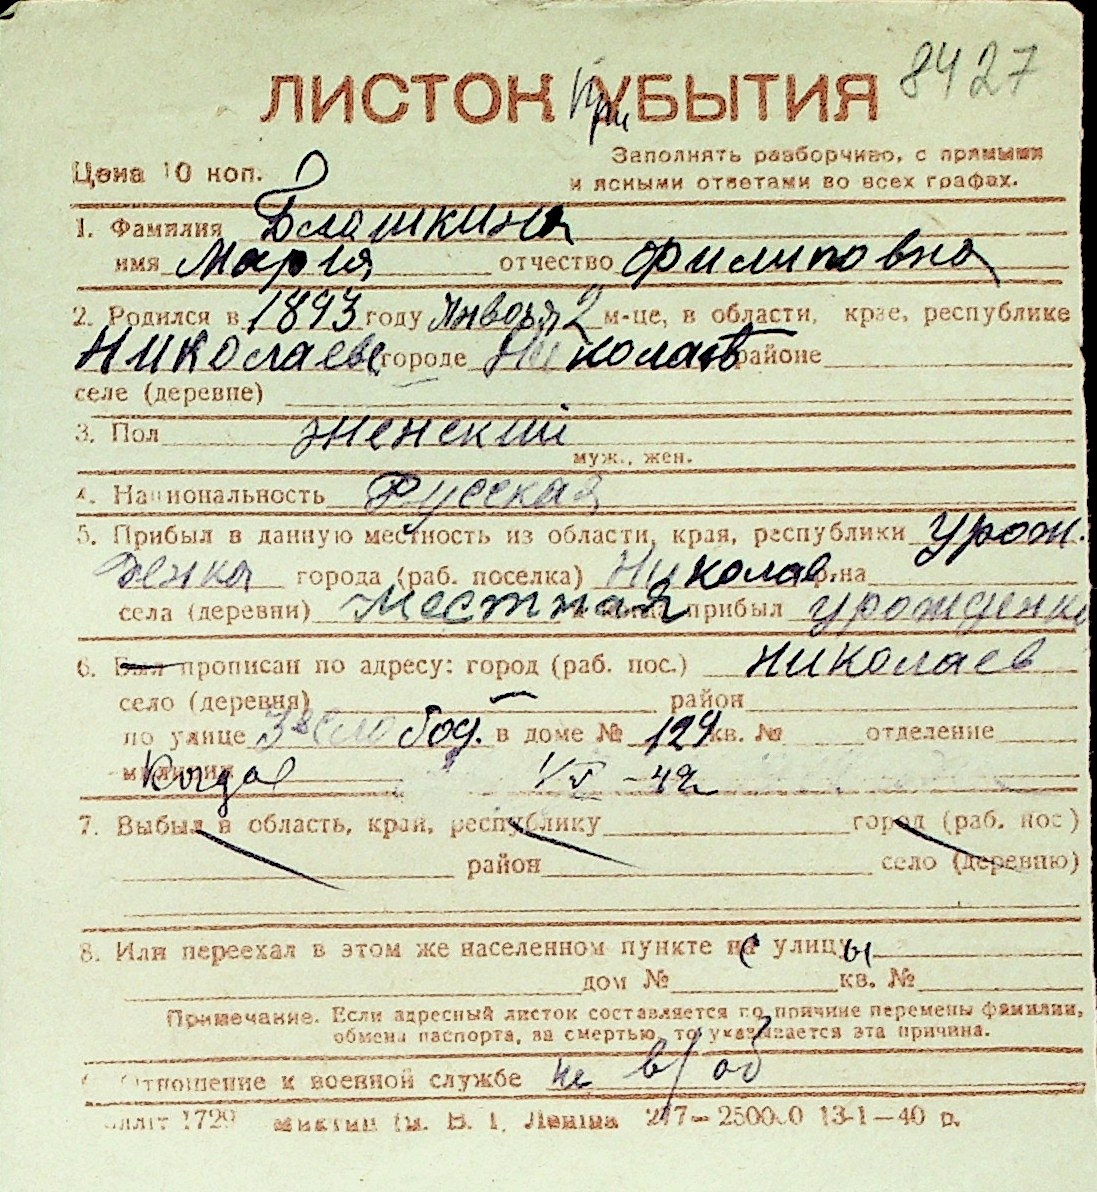 ЛИСТОК УБЫТИЯ При 8427
Цена 10 коп. Заполнять разборчиво, с прямыми
и ясными ответами во всех графах.
1. Фамилия Блашкина
имя Марія отчество Филиповна
2. Родился в 1893 году Января 2 м-це, в области, крае, республике
Николаев городе Николаев районе
селе (деревне)
3. Пол женский
муж., жен.
4. Национальность Русская
5. Прибыл в данную местность из области, края, республики урож.
денка города (раб. поселка) Николаев. р-на
села (деревни) местная прибыл урожденка
6. Был прописан по адресу: город (раб. пос.) Николаев
село (деревня) район
по улице 3 Слобод. в доме № 129 кв. № отделение
милиции Когда 1/VI - 42
7. Выбыл в область, край, республику город (раб. пос)
район село (деревню)
8. Или переехал в этом же населенном пункте с улицы
дом № кв. №
Примечание. Если адресный листок составляется по причине перемены фамилии,
обмена паспорта, за смертью, то указывается эта причина.
Отношение к военной службе не в/об
1729 им. В. І. Леніна 247—25000 13-1—40 р.